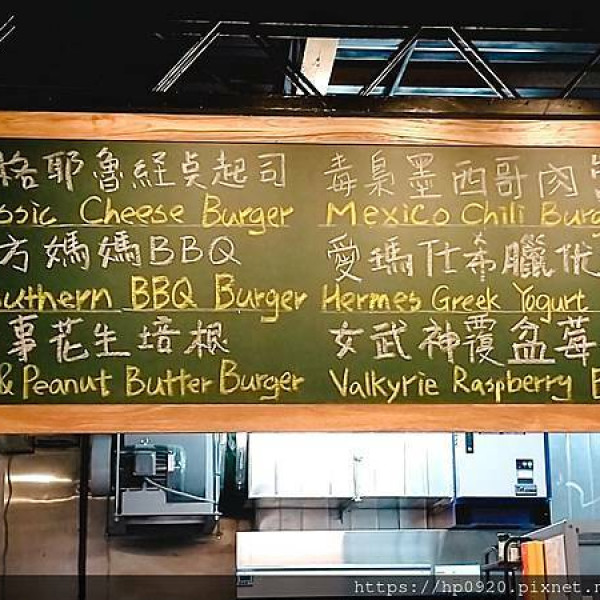 格耶魯經典起司
ssic Cheese Burger
方媽媽BBQ
uthern BBQ Burger
事花生培根
& Peanut Butter Burger
毒梟墨西哥肉
Mexico Chili Burg
愛瑪仕希臘优
Hermes Greek Yogurt
女武神覆盆莓
Valkyrie Raspberry B
https://hp0920.pixnet.n